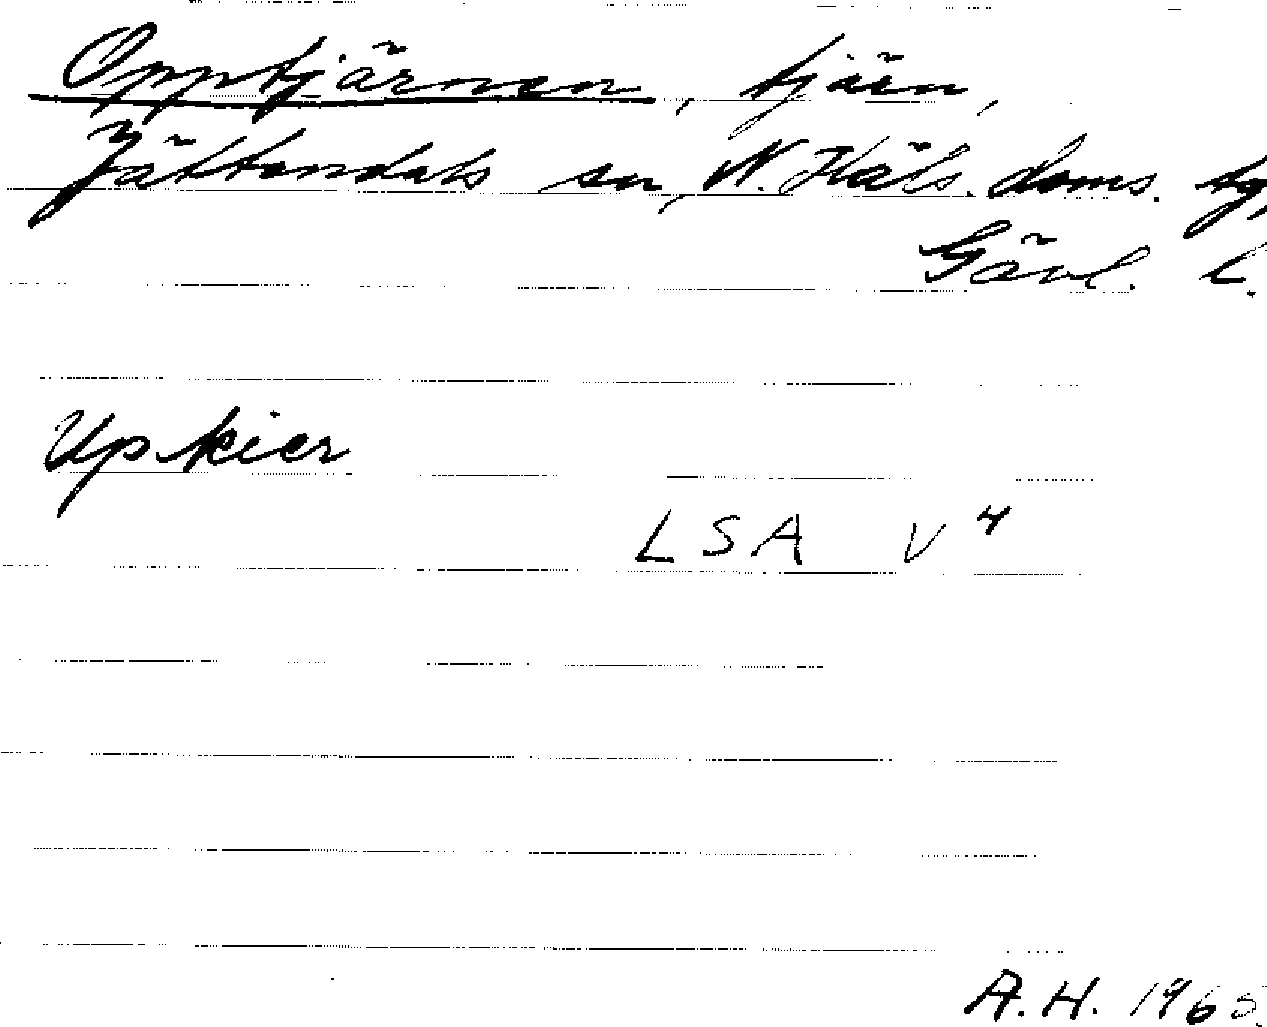 Opptjärnen, tjärn,
Jättendals sn, N. Häls. doms. tg,
Gävl. l.
Upkier
LSA V4
A.H. 1965.